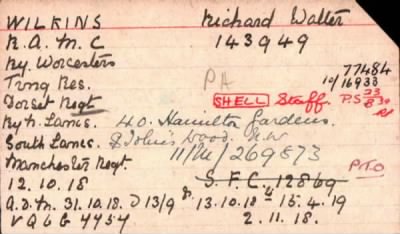 WILKINS Richard Walter
R.A.M.C 143949
Ry. Worcesters 77484
Trng Res. PA 10/16933
Dorset Regt SHELL Staff. P.S 23/8/30
Ry h. Lancs. 40. Hamilton Gardens.
South Lancs. St John's Wood. N.W
Manchester Regt 11/M/269873 P.T.O
12.10.18 S.F.C. 12869
A.D.M. 31.10.18. D 13/9 13.10.18 15.4.19
V Q 6 G 4454 2.11.18.